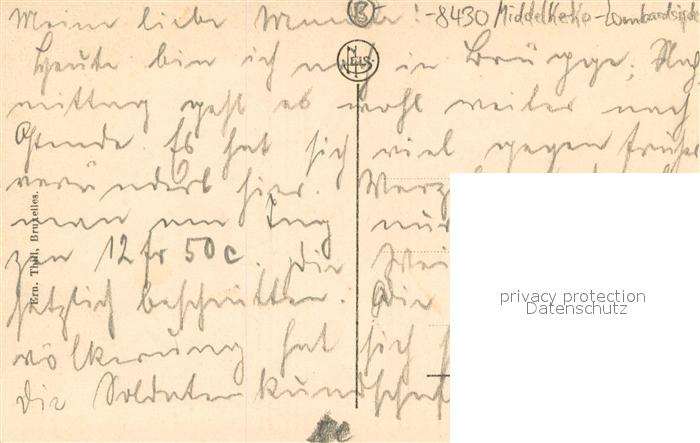 Meine liebe B -8430 Middelkerke-Lombardsijde
Heute bin ich noch in Brügge, Nach
mittag geht es wohl weiter nach
Ostende. Es hat sich viel gegen früher
verändert hier.
man nur
12 fr 50 c. Die
beschnitten. Die
völkerung hat sich
die Soldatenkundschaft
NELS
Ern. Thill, Bruxelles.
privacy protection
Datenschutz